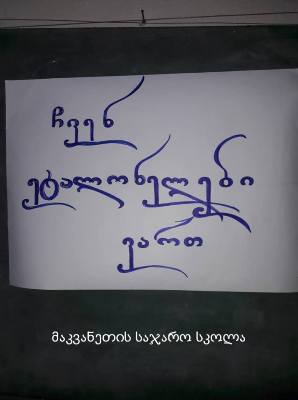 ჩვენ
ეტალონელები
ვართ
მაკვანეთის საჯარო სკოლა